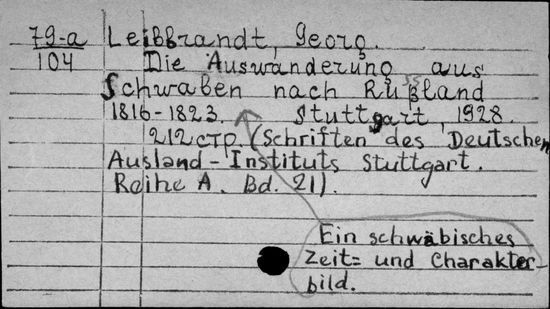 79-a Leibbrandt, Georg.
104 Die Auswanderung aus
Schwaben nach Rußland
1816-1823. Stuttgart, 1928.
212 стр (Schriften des Deutschen
Ausland-Instituts Stuttgart.
Reihe A. Bd. 21).
Ein schwäbisches
Zeit= und Charakter-
bild.